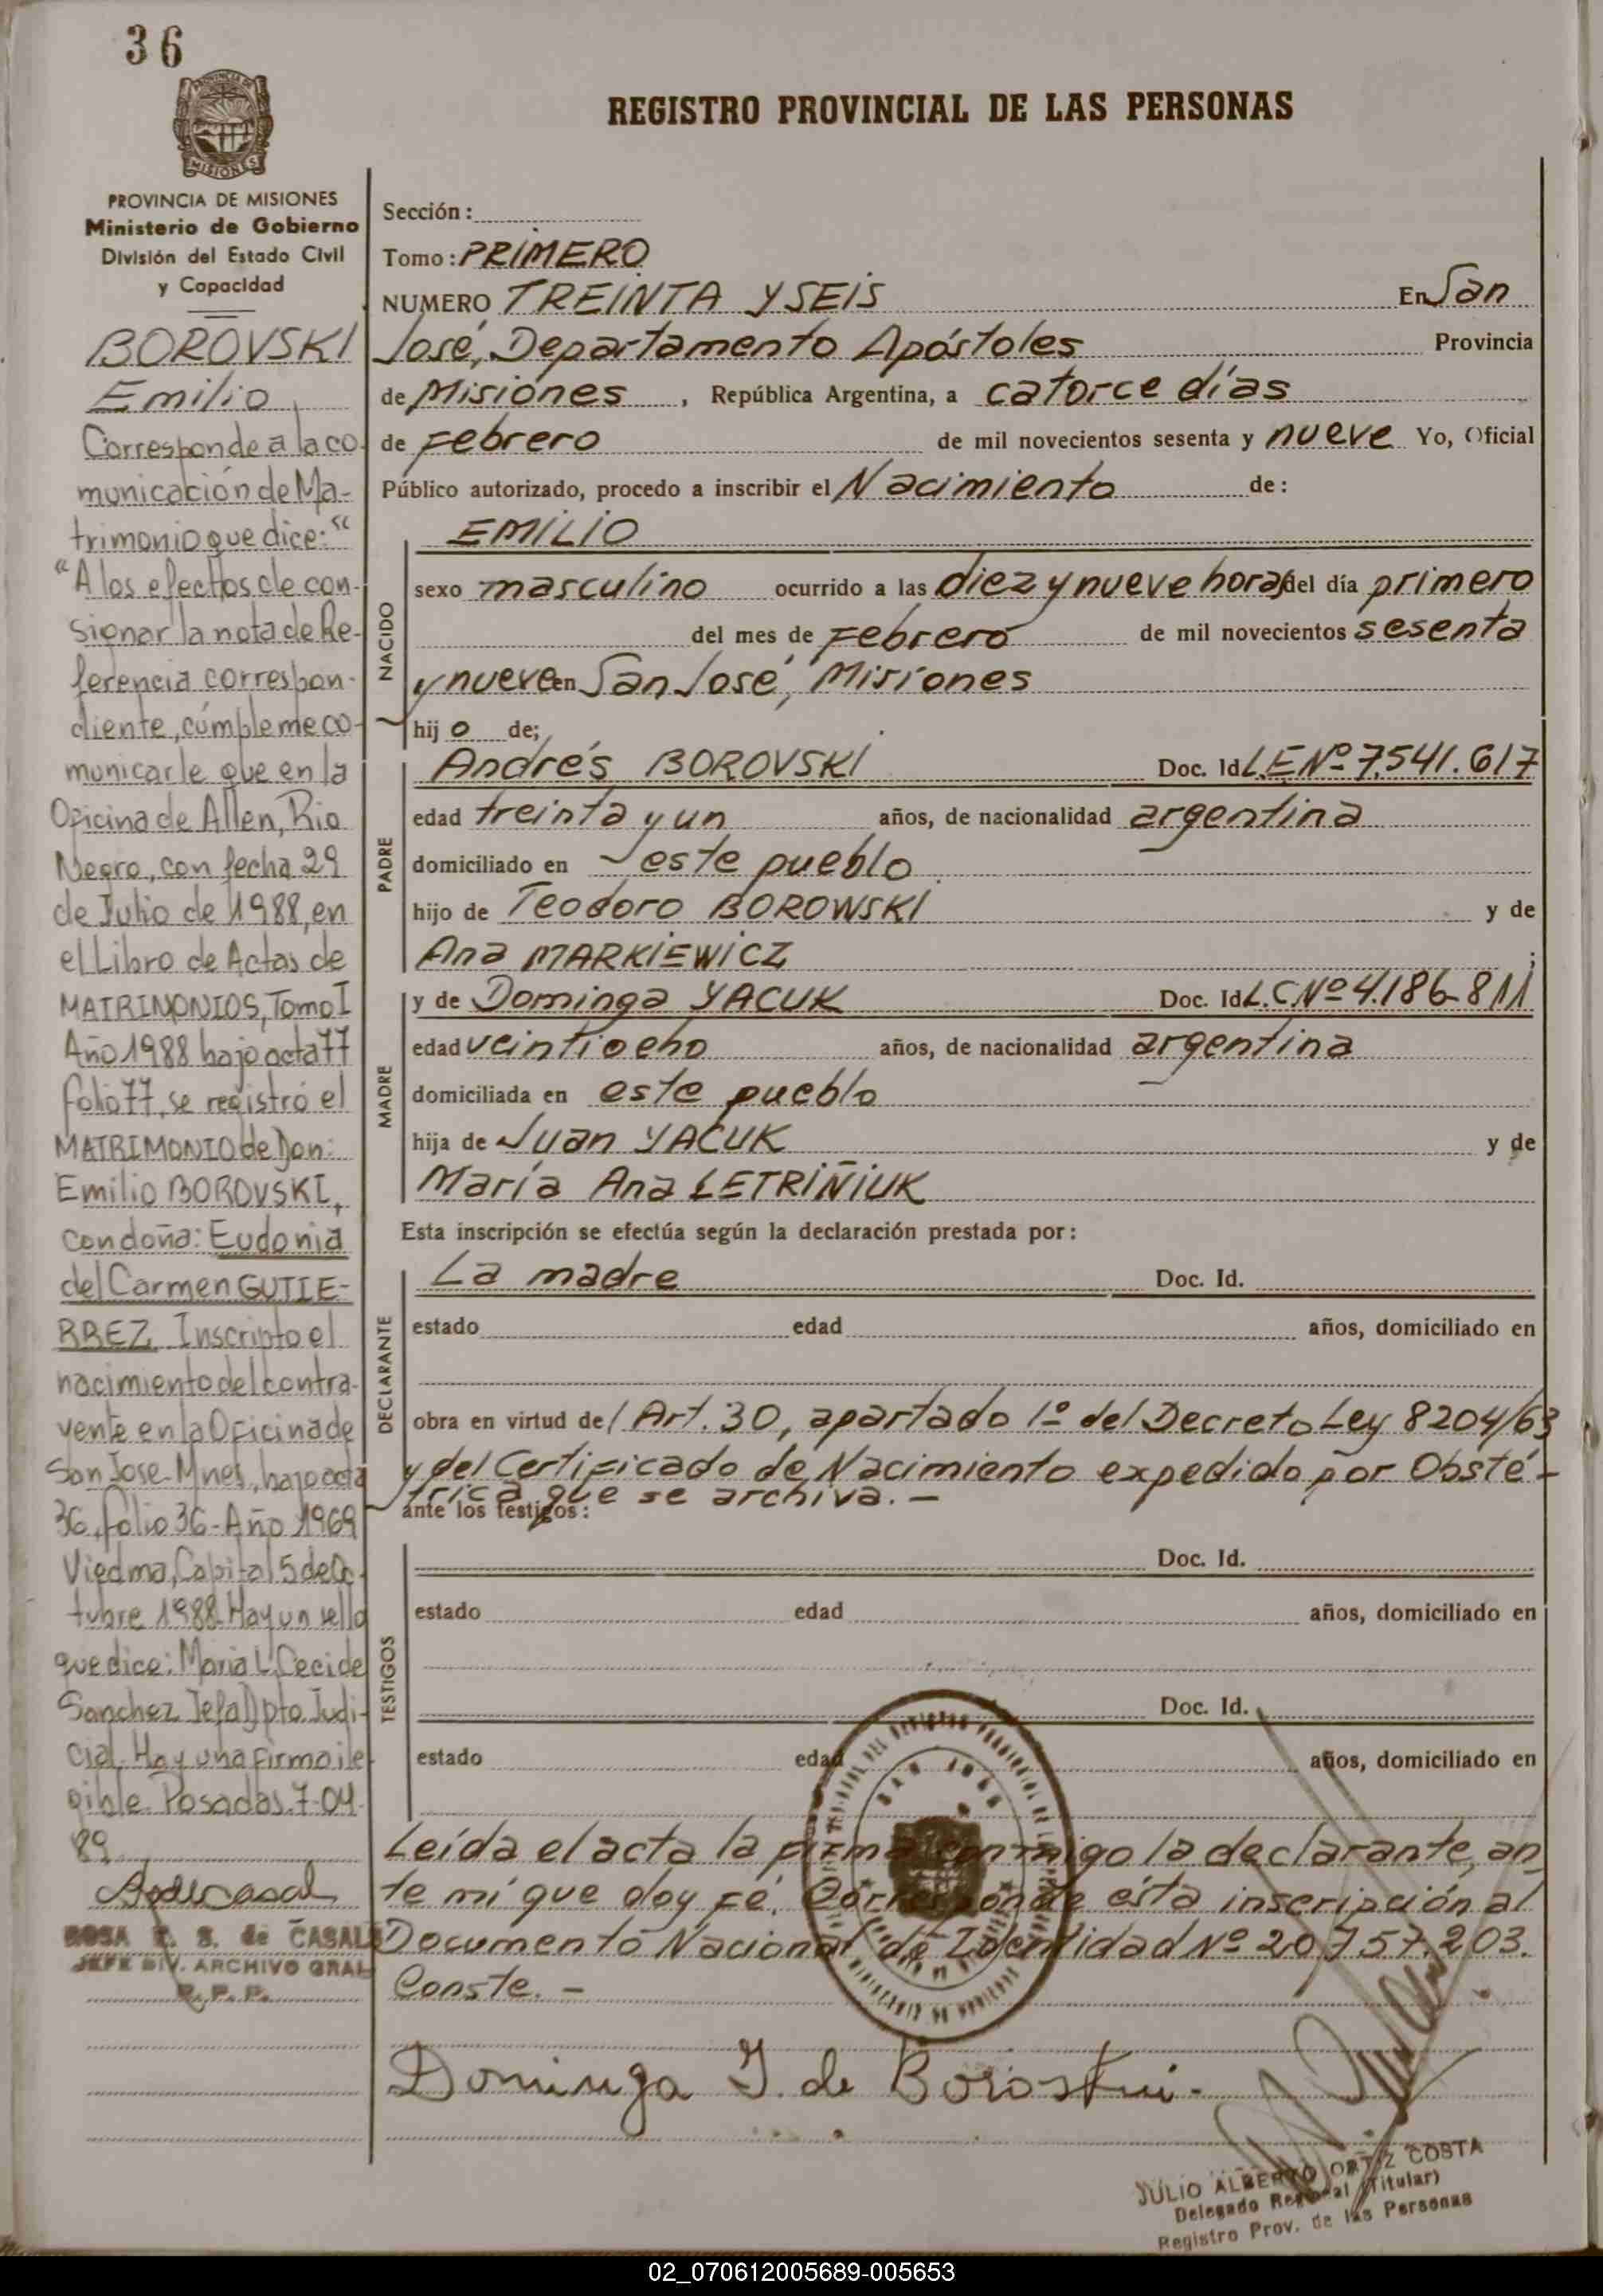 36
PROVINCIA DE
MISIONES
REGISTRO PROVINCIAL DE LAS PERSONAS
PROVINCIA DE MISIONES
Ministerio de Gobierno
División del Estado Civil
y Capacidad
BOROVSKI
Emilio
Corresponde a la co-
municación de Ma-
trimonio que dice: "
"A los efectos de con-
signar la nota de Re-
ferencia correspon-
diente, cúmpleme co-
municarle que en la
Oficina de Allen, Rio
Negro, con fecha 29
de Julio de 1988, en
el Libro de Actas de
MATRIMONIOS, Tomo I
Año 1988 bajo acta 77
folio 77, se registró el
MATRIMONIO de Don:
Emilio BOROVSKI,
con doña: Eudonia
del Carmen GUTIE-
RREZ. Inscripto el
nacimiento del contra-
yente en la Oficina de
San Jose-Mnes, bajo acta
36, folio 36-Año 1969
Viedma, Capital 5 de Oc-
tubre 1988-Hay un sello
que dice: Maria L. Cecide
Sanchez Jefa Dpto. Judi-
cial. Hay una firma ile-
gible. Posadas. 7-04-
89
ROSA E. S. de CASALS
JEFE DIV. ARCHIVO GRAL
R. P. P.
Sección:
Tomo: PRIMERO
NUMERO TREINTA Y SEIS En San
José, Departamento Apóstoles Provincia
de Misiones, República Argentina, a catorce días
de Febrero de mil novecientos sesenta y nueve Yo, Oficial
Público autorizado, procedo a inscribir el Nacimiento de:
NACIDO
EMILIO
sexo masculino ocurrido a las diez y nueve horas del día primero
del mes de Febrero de mil novecientos sesenta
y nueve en San José, Misiones
hijo de;
PADRE
Andrés BOROVSKI Doc. Id L.E Nº 7.541.617
edad treinta y un años, de nacionalidad argentina
domiciliado en este pueblo
hijo de Teodoro BOROWSKI y de
Ana MARKIEWICZ ;
MADRE
y de Dominga YACUK Doc. Id L.C. Nº 4.186-811
edad veintiocho años, de nacionalidad argentina
domiciliada en este pueblo
hija de Juan YACUK y de
María Ana LETRIÑIUK
Esta inscripción se efectúa según la declaración prestada por:
DECLARANTE
La madre Doc. Id.
estado edad años, domiciliado en
obra en virtud del Art. 30, apartado 1º del Decreto Ley 8204/63
y del Certificado de Nacimiento expedido por Obsté-
trica que se archiva. -
ante los testigos:
TESTIGOS
Doc. Id.
estado edad años, domiciliado en
Doc. Id.
estado edad años, domiciliado en
Leída el acta la firma conmigo la declarante, an
te mí que doy fé. Corresponde ésta inscripción al
Documento Nacional de Identidad Nº 20.757.203.
Conste. -
SAN JOSE
Dominga Y. de Boroski.
JULIO ALBERTO ORTIZ COSTA
Delegado Regional (Titular)
Registro Prov. de las Personas
02_070612005689-005653